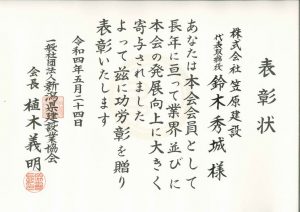 表彰状
株式会社笠原建設
代表取締役 鈴木秀城様
あなたは本会会員として
長年に亘って業界並びに
本会の発展向上に大きく
寄与されました
よって茲に功労彰を贈り
表彰いたします
令和四年五月二十四日
一般社団法人新潟県建設業協会
会長 植木義明